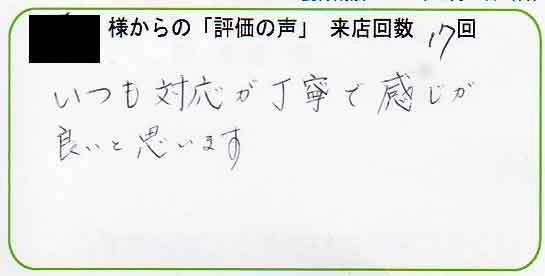 様からの「評価の声」 来店回数 17回
いつも対応が丁寧で感じが
良いと思います